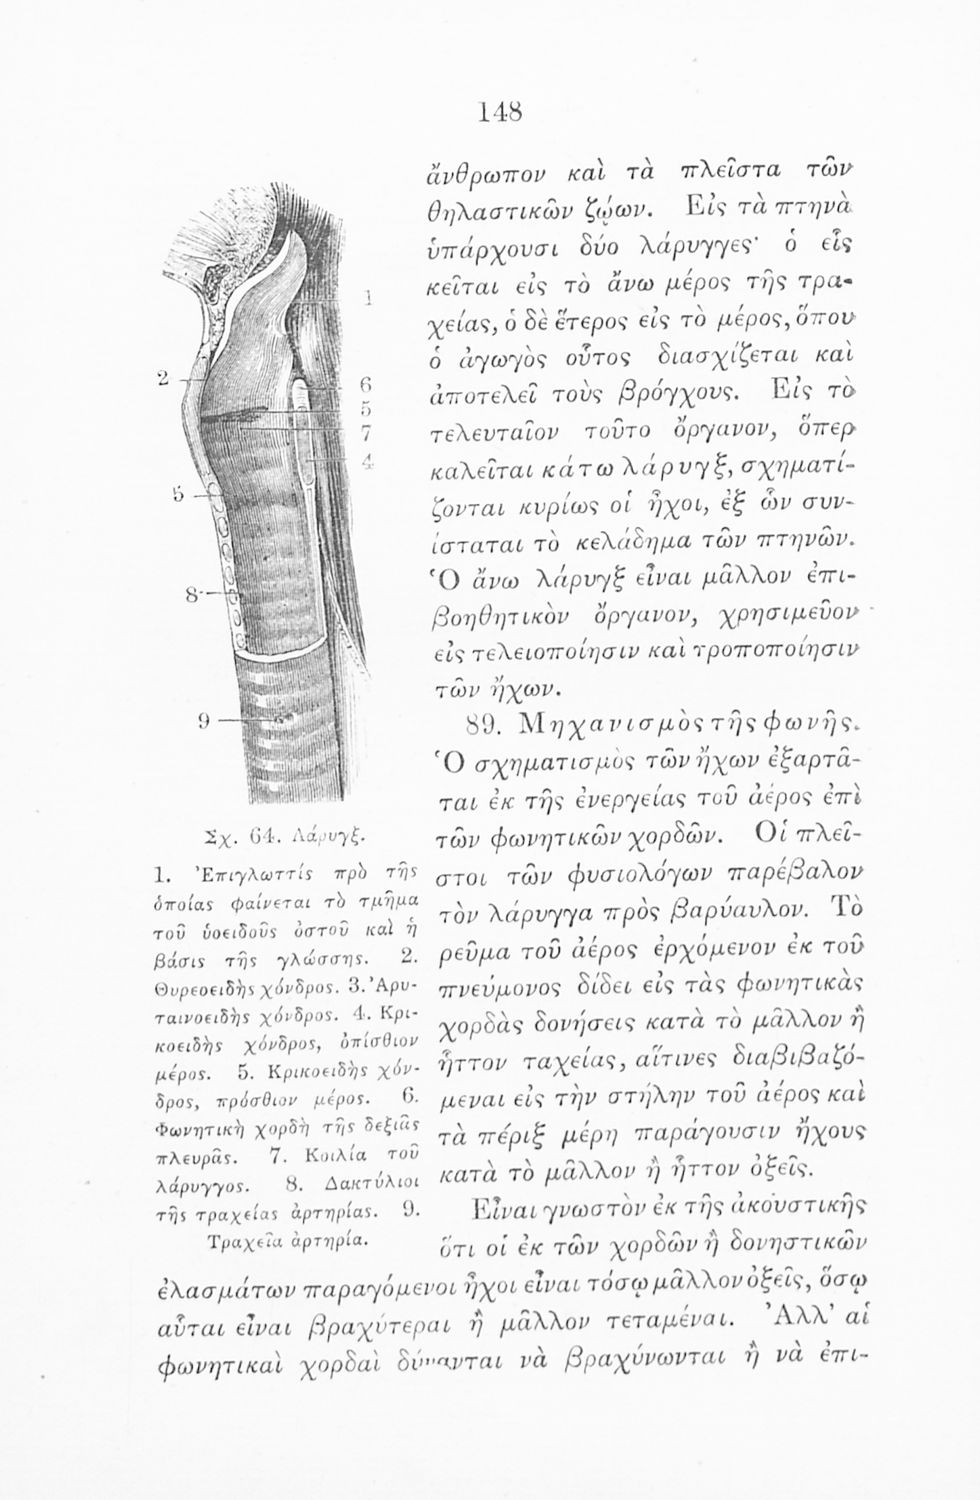 148
ἄνθρωπον καὶ τὰ πλεῖστα τῶν
θηλαστικῶν ζῴων. Εἰς τὰ πτηνὰ
ὑπάρχουσι δύο λάρυγγες· ὁ εἷς
κεῖται εἰς τὸ ἄνω μέρος τῆς τρα-
χείας, ὁ δὲ ἕτερος εἰς τὸ μέρος, ὅπου
ὁ ἀγωγὸς οὗτος διασχίζεται καὶ
ἀποτελεῖ τοὺς βρόγχους. Εἰς τὸ
τελευταῖον τοῦτο ὄργανον, ὅπερ
καλεῖται κάτω λάρυγξ, σχηματί-
ζονται κυρίως οἱ ἦχοι, ἐξ ὧν συν-
ίσταται τὸ κελάδημα τῶν πτηνῶν.
Ὁ ἄνω λάρυγξ εἶναι μᾶλλον ἐπι-
βοηθητικὸν ὄργανον, χρησιμεῦον
εἰς τελειοποίησιν καὶ τροποποίησιν
τῶν ἤχων.
89. Μηχανισμὸς τῆς φωνῆς.
Ὁ σχηματισμὸς τῶν ἤχων ἐξαρτᾶ-
ται ἐκ τῆς ἐνεργείας τοῦ ἀέρος ἐπὶ
τῶν φωνητικῶν χορδῶν. Οἱ πλεῖ-
στοι τῶν φυσιολόγων παρέβαλον
τὸν λάρυγγα πρὸς βαρύαυλον. Τὸ
ρεῦμα τοῦ ἀέρος ἐρχόμενον ἐκ τοῦ
πνεύμονος δίδει εἰς τὰς φωνητικὰς
χορδὰς δονήσεις κατὰ τὸ μᾶλλον ἢ
ἧττον ταχείας, αἵτινες διαβιβαζό-
μεναι εἰς τὴν στήλην τοῦ ἀέρος καὶ
τὰ πέριξ μέρη παράγουσιν ἤχους
κατὰ τὸ μᾶλλον ἢ ἧττον ὀξεῖς.
Εἶναι γνωστὸν ἐκ τῆς ἀκουστικῆς
ὅτι οἱ ἐκ τῶν χορδῶν ἢ δονηστικῶν
ἐλασμάτων παραγόμενοι ἦχοι εἶναι τόσῳ μᾶλλον ὀξεῖς, ὅσῳ
αὗται εἶναι βραχύτεραι ἢ μᾶλλον τεταμέναι. Ἀλλ' αἱ
φωνητικαὶ χορδαὶ δύνανται νὰ βραχύνωνται ἢ νὰ ἐπι-
1
2
6
5
7
4
5
8
9
Σχ. 64. Λάρυγξ.
1. Ἐπιγλωττὶς πρὸ τῆς
ὁποίας φαίνεται τὸ τμῆμα
τοῦ ὑοειδοῦς ὀστοῦ καὶ ἡ
βάσις τῆς γλώσσης. 2.
Θυρεοειδὴς χόνδρος. 3. Ἀρυ-
ταινοειδὴς χόνδρος. 4. Κρι-
κοειδὴς χόνδρος, ὀπίσθιον
μέρος. 5. Κρικοειδὴς χόν-
δρος, πρόσθιον μέρος. 6.
Φωνητικὴ χορδὴ τῆς δεξιᾶς
πλευρᾶς. 7. Κοιλία τοῦ
λάρυγγος. 8. Δακτύλιοι
τῆς τραχείας ἀρτηρίας. 9.
Τραχεῖα ἀρτηρία.